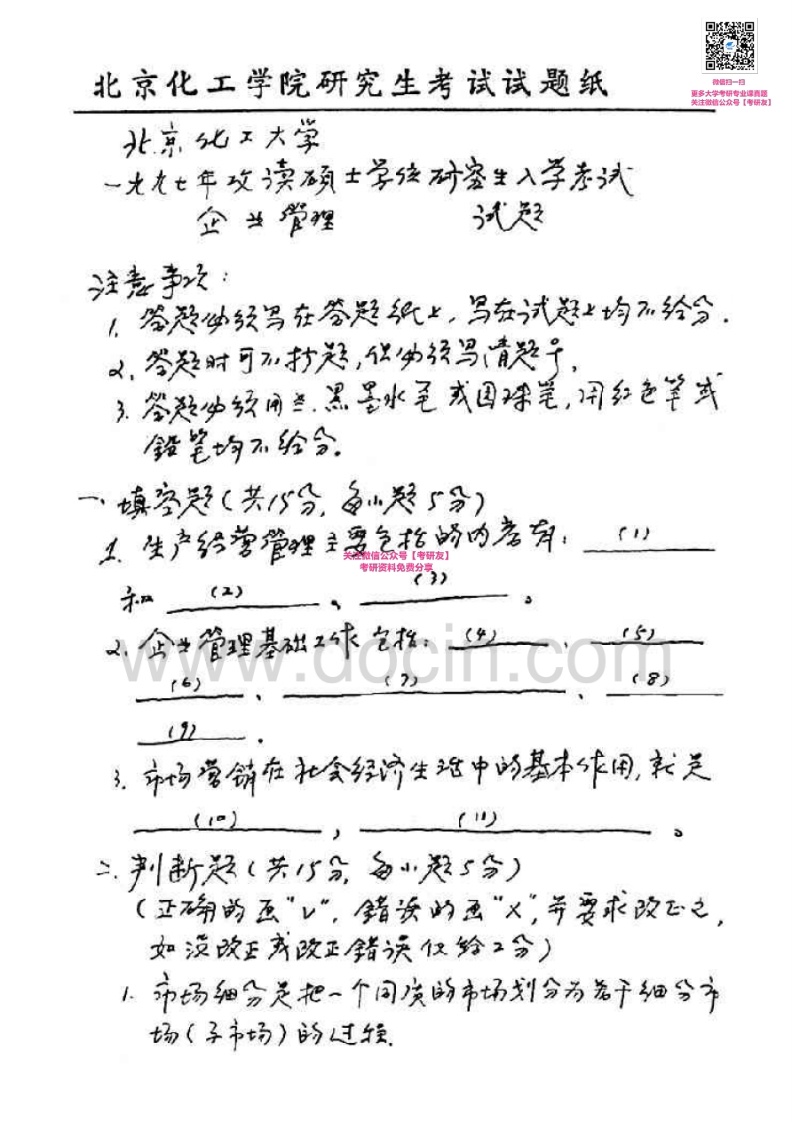 微信扫一扫
更多大学考研专业课真题
关注微信公众号【考研友】
北京化工学院研究生考试试题纸
北京化工大学
一九九七年攻读硕士学位研究生入学考试
企业管理 试题
注意事项：
1. 答题必须写在答题纸上，写在试题上均不给分.
2. 答题时可不抄题，但必须写清题号，
3. 答题必须用兰.黑墨水笔或圆珠笔，用红色笔或
鉛笔均不给分。
一、填空题（共15分，每小题5分）
1. 生产经营管理主要包括的内容有： (1)
关注微信公众号【考研友】
考研资料免费分享
和 (2) 、 (3) 。
www.docin.com
2. 企业管理基础工作包括： (4) 、 (5)
(6) 、 (7) 、 (8)
(9) .
3. 市场营销在社会经济生活中的基本作用，就是
(10) ， (11) 。
二. 判断题（共15分，每小题5分）
（正确的画"√"，错误的画"×"，并要求改正之，
如没改正或改正错误仅给2分）
1. 市场细分是把一个同质的市场划分为若干细分市
场（子市场）的过程.